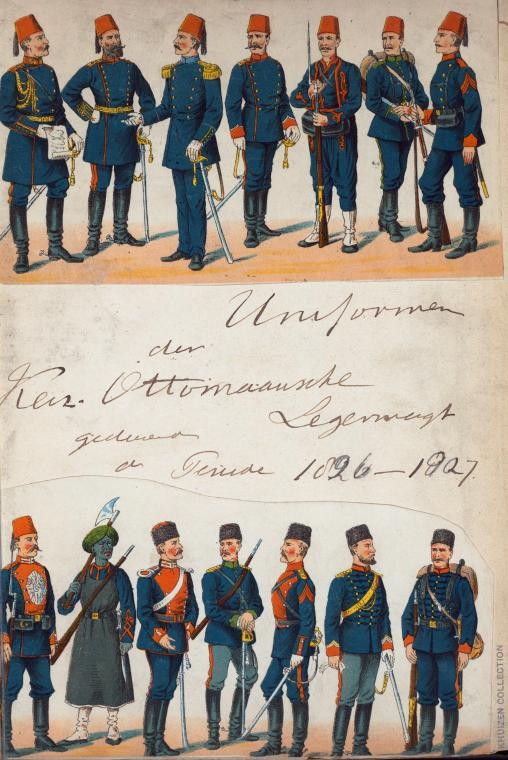 Uniformen
der
Keiz. Ottomaansche
Legermagt
gedurende
de Periode 1826-1907.
KHUIZEN COLLECTION